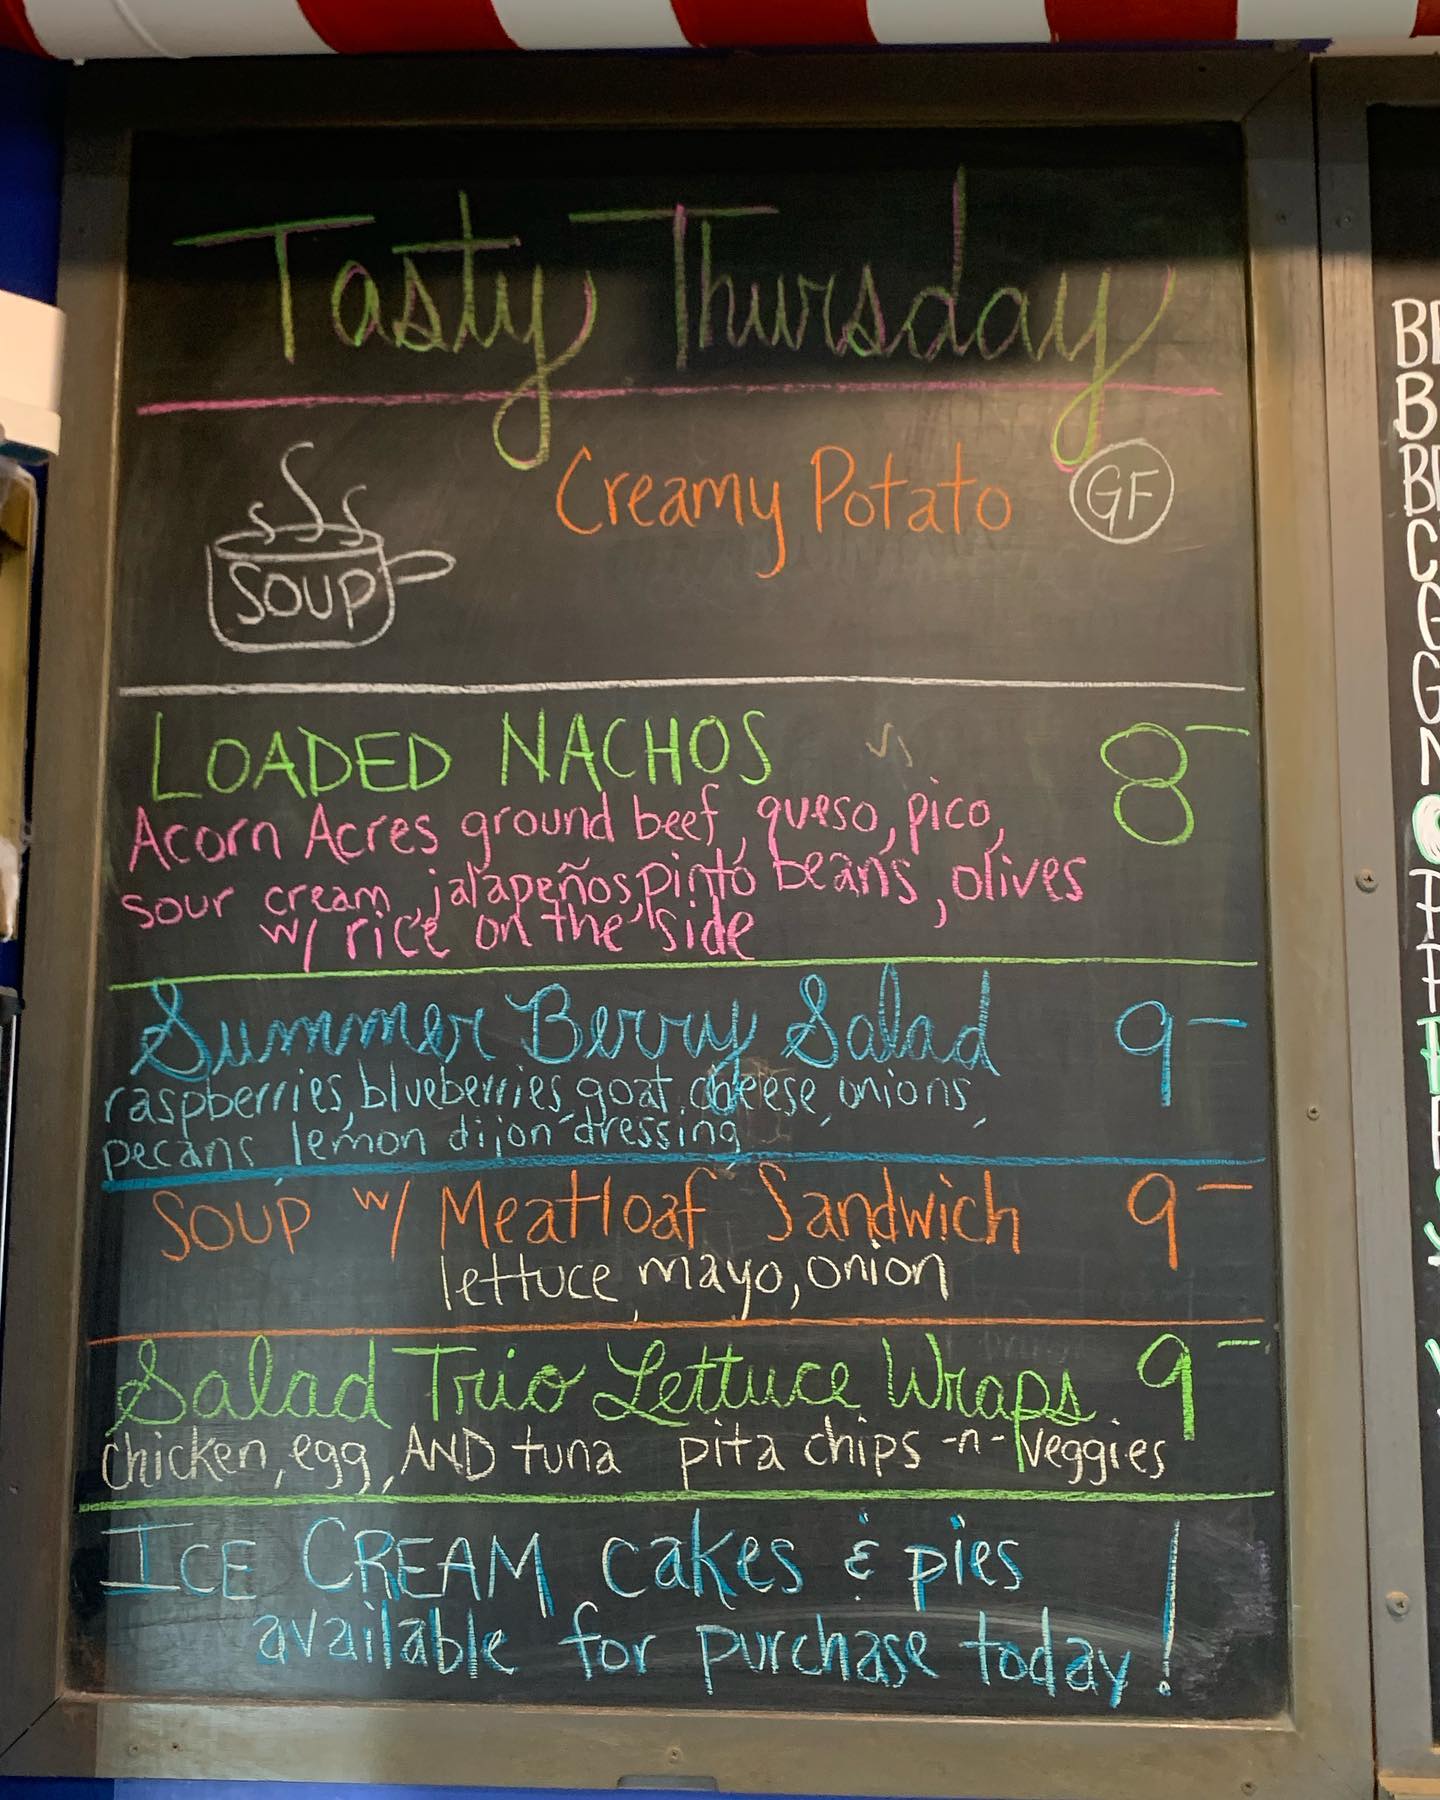 Tasty Thursday
Creamy Potato GF
SOUP
LOADED NACHOS 8-
Acorn Acres ground beef, queso, pico,
sour cream, jalapeños, pinto beans, olives
w/ rice on the side
Summer Berry Salad 9-
raspberries, blueberries, goat cheese, onions,
pecans lemon dijon dressing
SOUP w/ Meatloaf Sandwich 9-
lettuce, mayo, onion
Salad Trio Lettuce Wraps 9-
chicken, egg, AND tuna pita chips -n- veggies
ICE CREAM cakes & pies
available for purchase today!